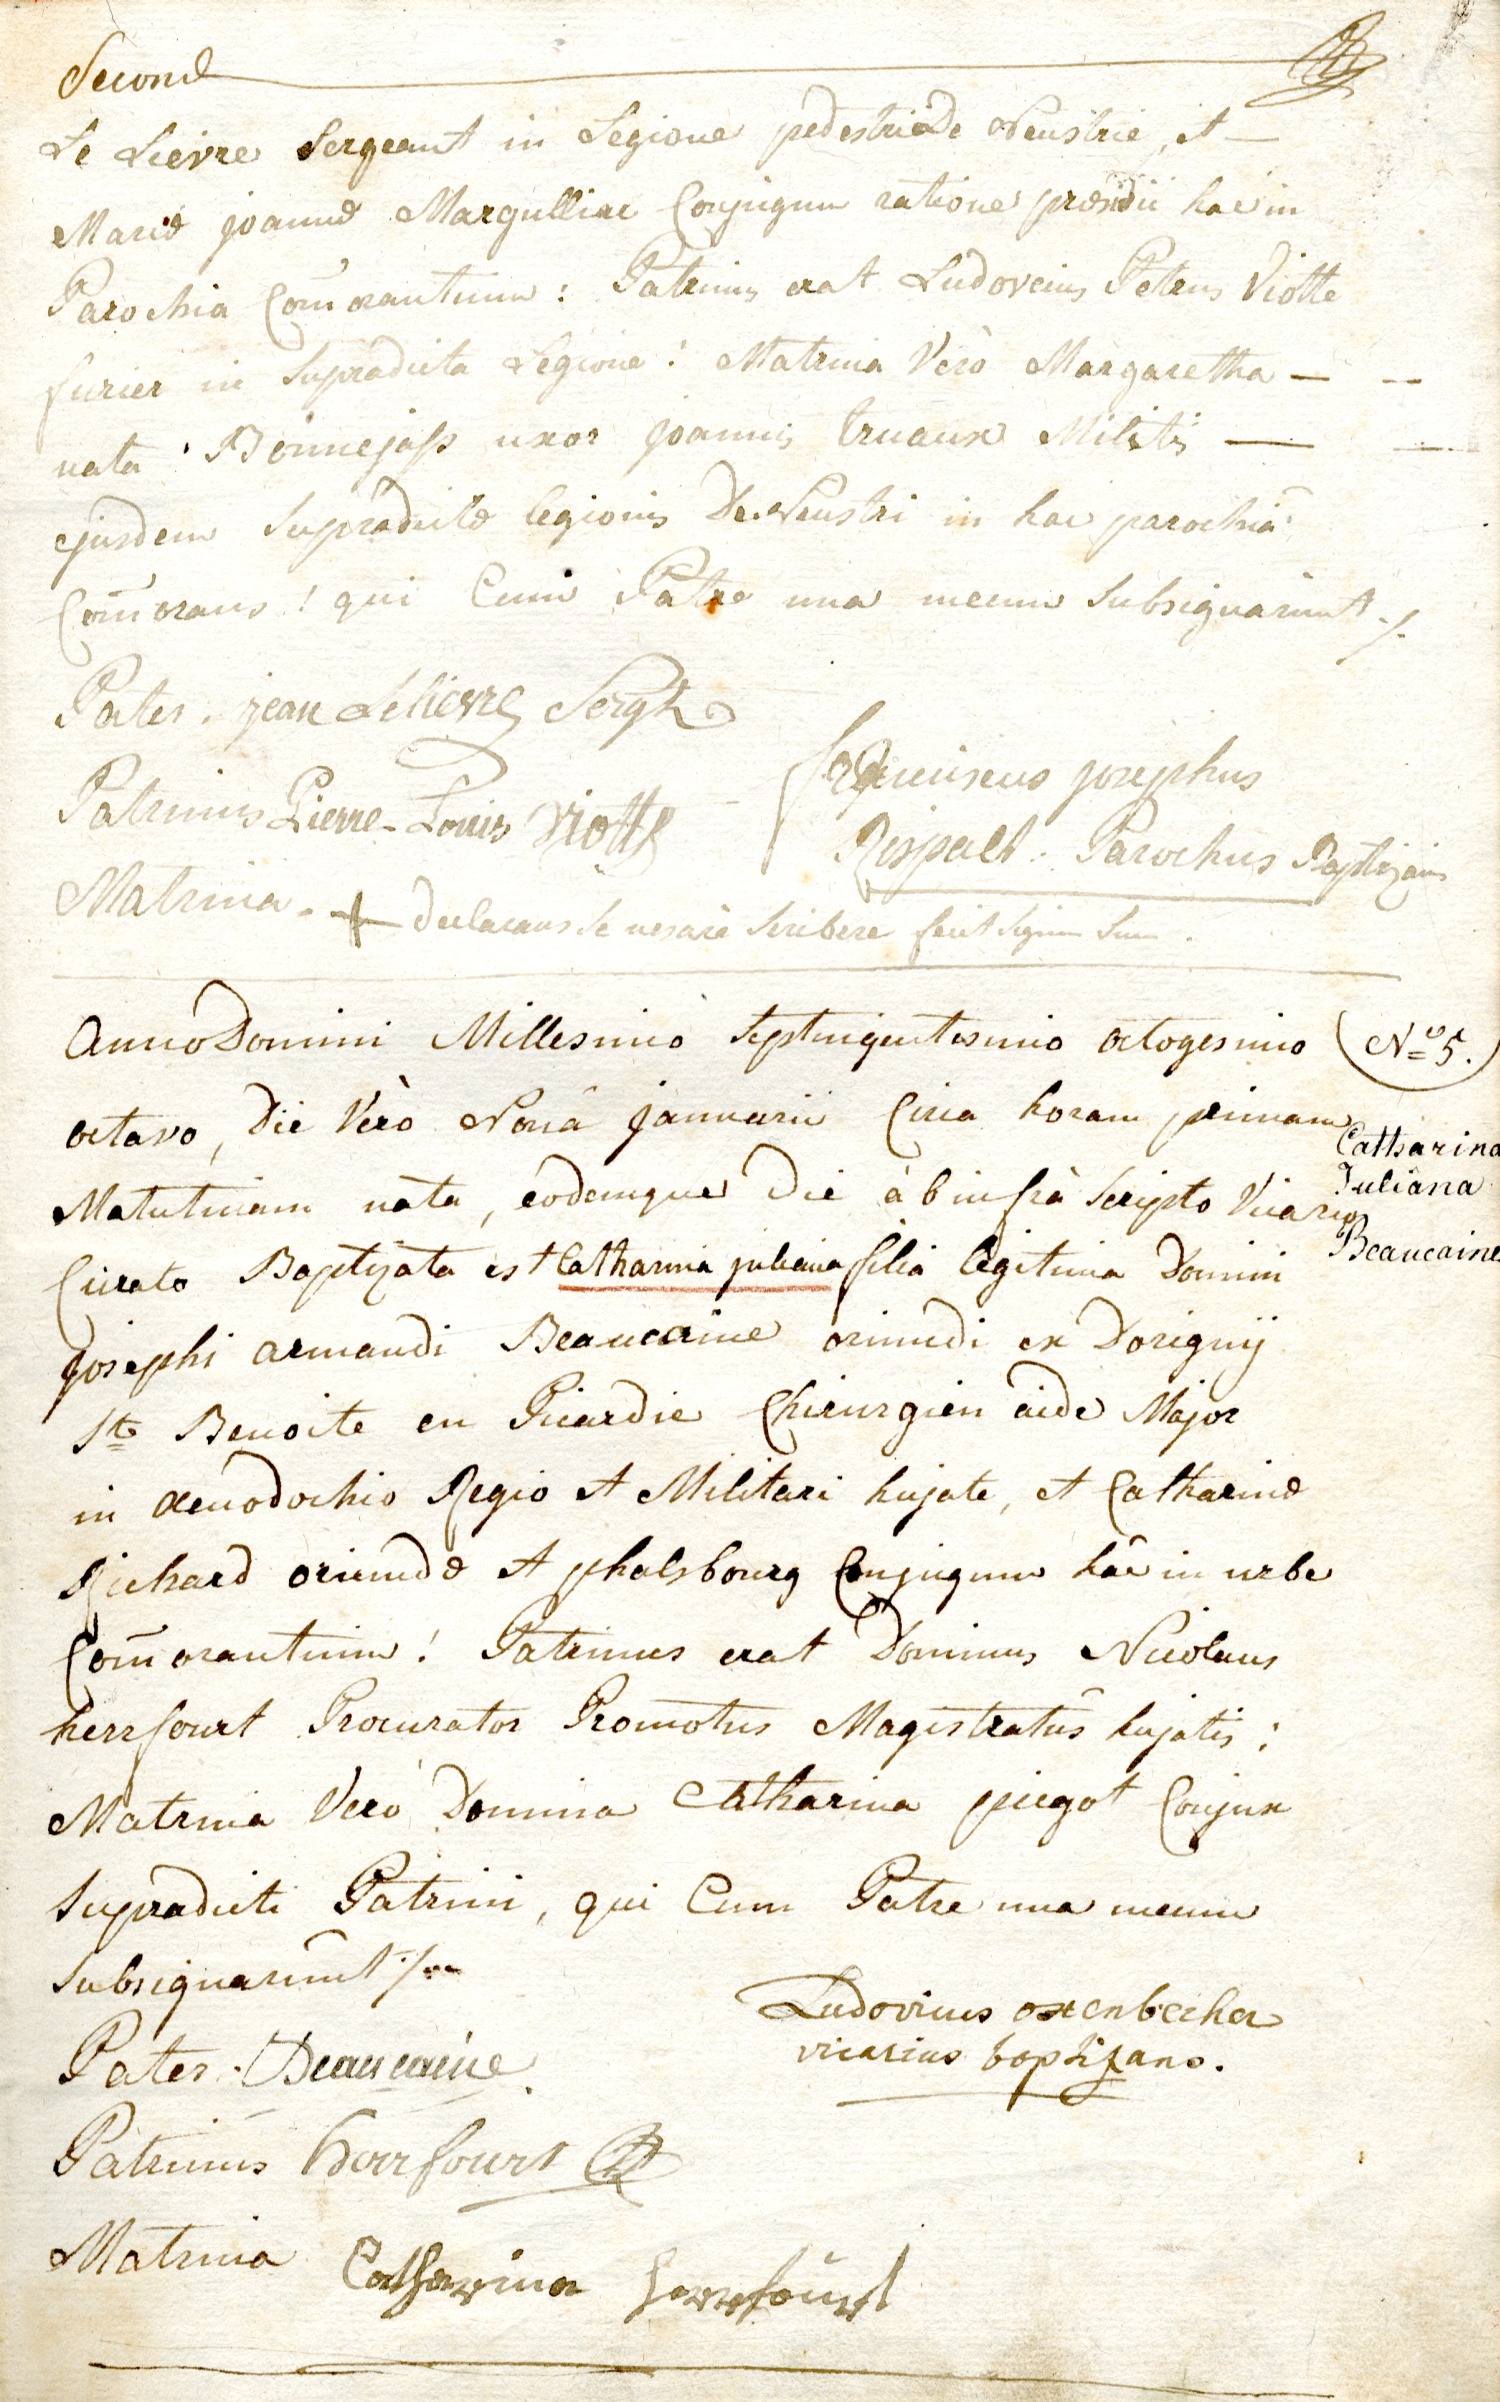 Second
Le Lievre Sergeant in Legione pedestri De Neustrie, et
Mariæ joannæ Margulliac Conjugum ratione præsidii hac in
Parochia Com̄orantium : Patrinus erat Ludovcius Petrus Viotte
furier in Supradicta Legione : Matrina Verò Margaretha
nata Bonnejass uxor joannis Cruaux Militis
ejusdem Supradictæ legionis De Neustri in hac parochiâ
Com̄orans : qui Cum Patre una mecum Subsignarunt ./.
Pater. jean Lelievre Sergt
Patrinus Pierre-Louis Viotte
franciscus josephus
Rispalt. Parochus Baptizans
Matrina. + declarans Se nescire Scribere fecit Signum Suum.
Anno Domini Millesimo Septingentesimo octogesimo
No 5.
octavo, Die Verò Nonâ januarii Circa horam primam
Matutinam nata, eodemque Die ab infrà Scripto Vicario
Catharina
Juliana
Beaucaine
Curato Baptizata est Catharina juliana filia legitima Domini
josephi armandi Beaucaine oriundi ex Dorignÿ
Ste Benoite en Picardie Chirurgien aide Major
in Xenodochio Regio et Militari hujate, et Catharinæ
Richard oriundæ et phalsbourg Conjugum hâc in urbe
Com̄orantium : Patrinus erat Dominus Nicolaus
herrfourt Procurator Promotus Magistratûs hujatis ;
Matrina Verò Domina Catharina pigot Conjux
Supradicti Patrini, qui Cum Patre una mecum
Subsignarunt ./.
Ludovicus oxenbecher
vicarius baptizans.
Pater. Beaucaine
Patrinus herrfourt
Matrina Catharina herrfourt